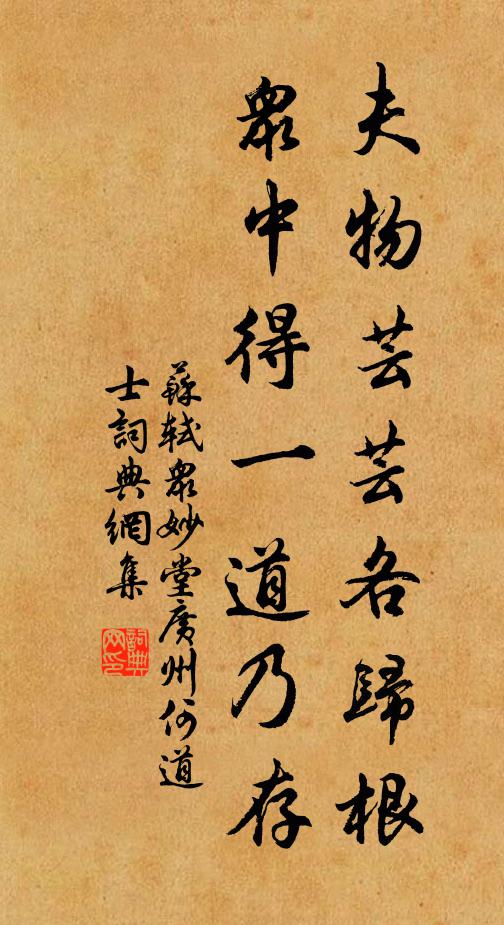 夫物芸芸各歸根
眾中得一道乃存
蘇軾眾妙堂廣州何道
士詞典網集
詞典
网印